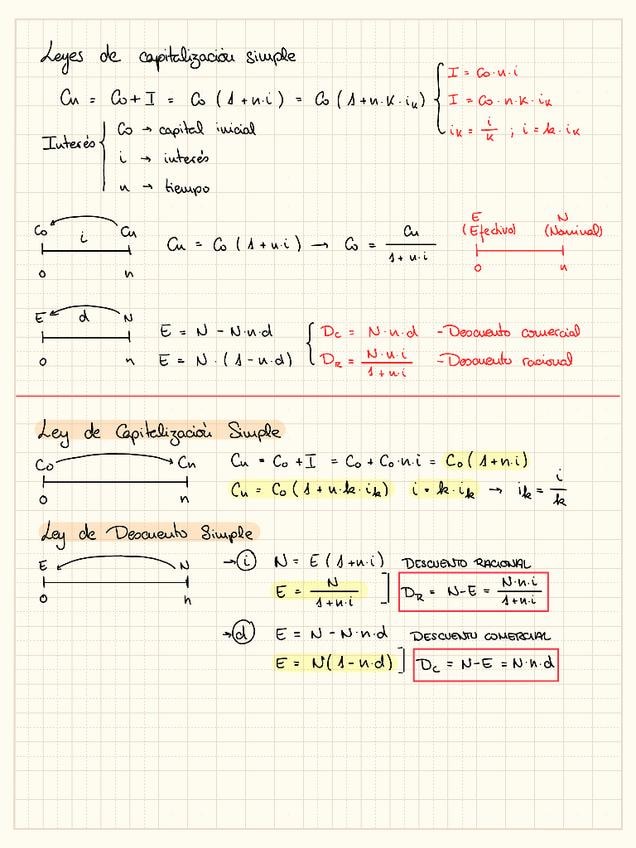 Leyes de capitalización simple
Cn = Co + I = Co (1+n·i) = Co (1+n·k·ik)
I = Co·n·i
I = Co·n·k·ik
ik = i/k ; i = k·ik
Interés
Co → capital inicial
i → interés
n → tiempo
Co i Cn
0 n
Cn = Co (1+n·i) → Co = Cn/(1+n·i)
E (Efectivo) N (Nominal)
0 n
E d N
0 n
E = N - N·n·d
E = N · (1-n·d)
Dc = N·n·d - Descuento comercial
DR = N·n·i/(1+n·i) - Descuento racional
Ley de Capitalización Simple
Co Cn
0 n
Cn = Co + I = Co + Co·n·i = Co (1+n·i)
Cn = Co (1+n·k·ik) i = k·ik → ik = i/k
Ley de Descuento Simple
E N
0 n
→ i N = E (1+n·i) DESCUENTO RACIONAL
E = N/(1+n·i) DR = N-E = N·n·i/(1+n·i)
→ d E = N - N·n·d DESCUENTO COMERCIAL
E = N(1-n·d) Dc = N-E = N·n·d